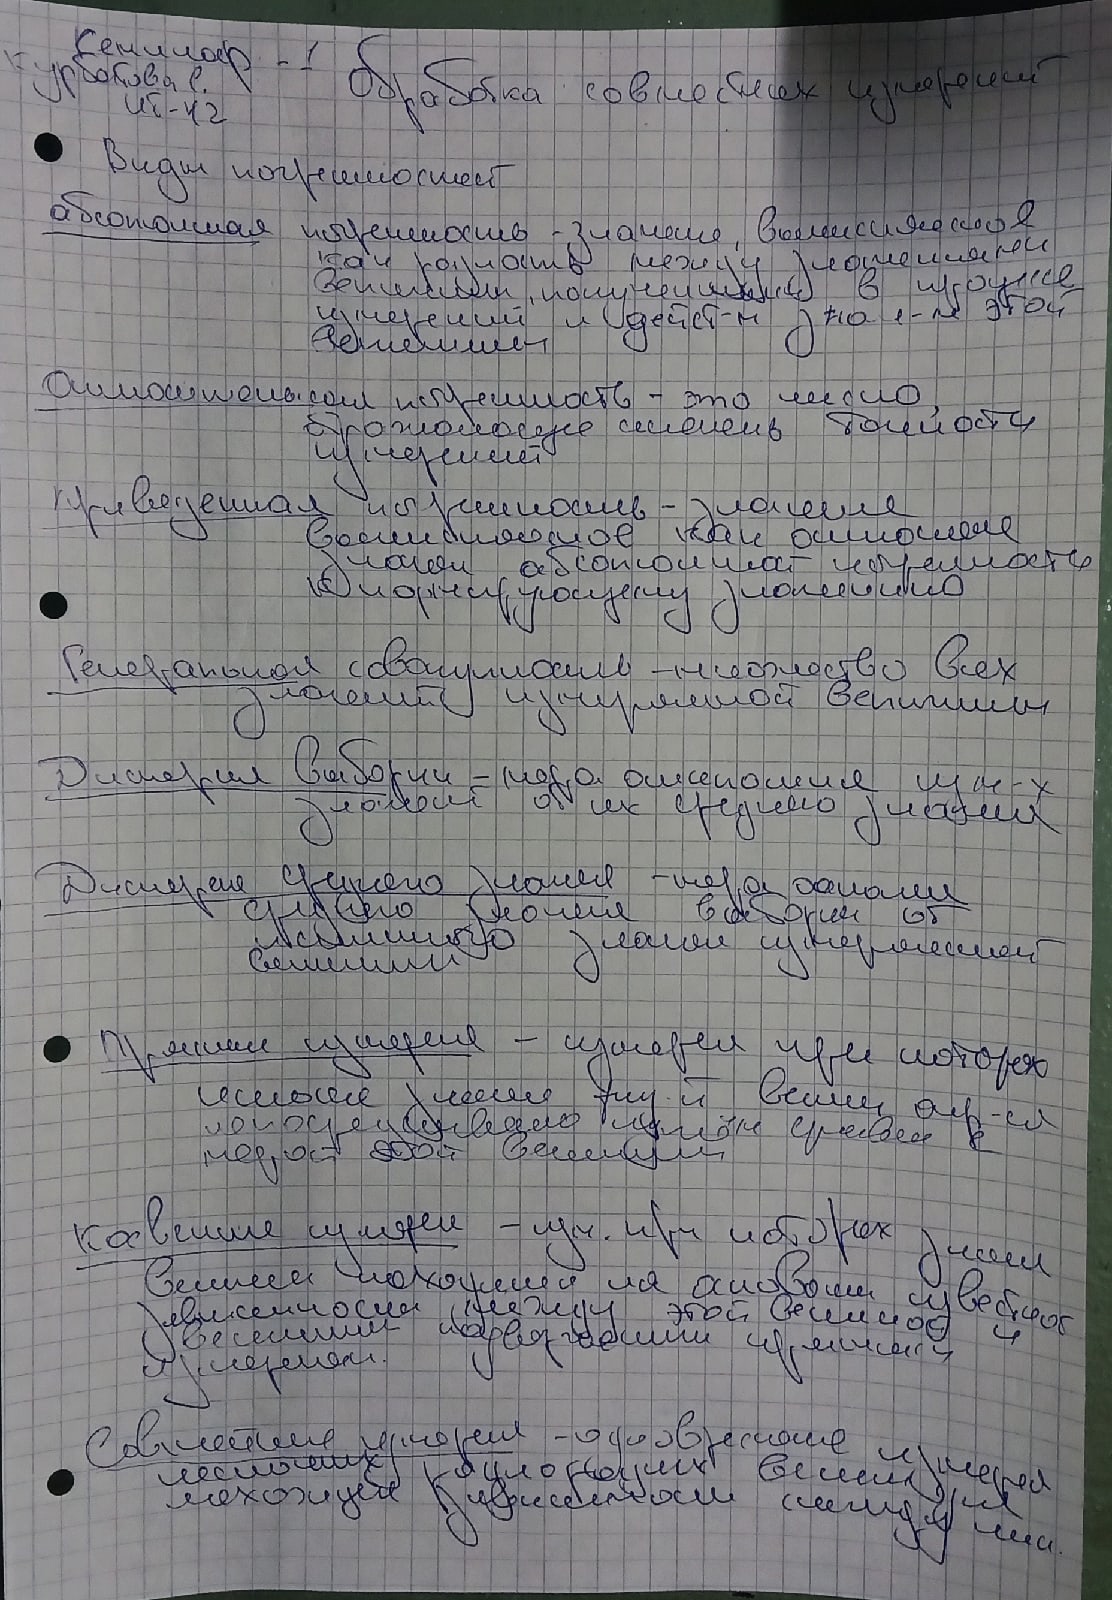 Семинар - 1
Курбатова С.
ИТ-42
Обработка совместных измерений
Виды погрешностей
абсолютная погрешность - значение, вычисляемое
как разность между значением
величины, полученным в процессе
измерений и дейст-м знач-м этой
величины
Относительная погрешность - это число,
отражающее степень точности
измерений
Приведенная погрешность - значение
вычисляемое как отношение
значен абсолютной погрешности
к нормирующему значению
Генеральная совокупность - множество всех
значений измеряемой величины
Дисперсия выборки - мера отклонения изм-х
значений от их среднего значения
Дисперсия среднего значен - мера
среднего значен выборки от
истинного значен измеряемой
величины
Прямые измерен - измерен при которых
искомое значен физ-й велич опр-ся
непосредственно путём сравнен с
мерой этой величины
Косвенные измерен - изм. при которых значен
величин находится на основании известной
зависимости между этой величиной и
величинами подвергаемыми прямым
измерениям.
Совместные измерен - одновременные измерен
нескольких величин для
нахождения зависимости между ними.